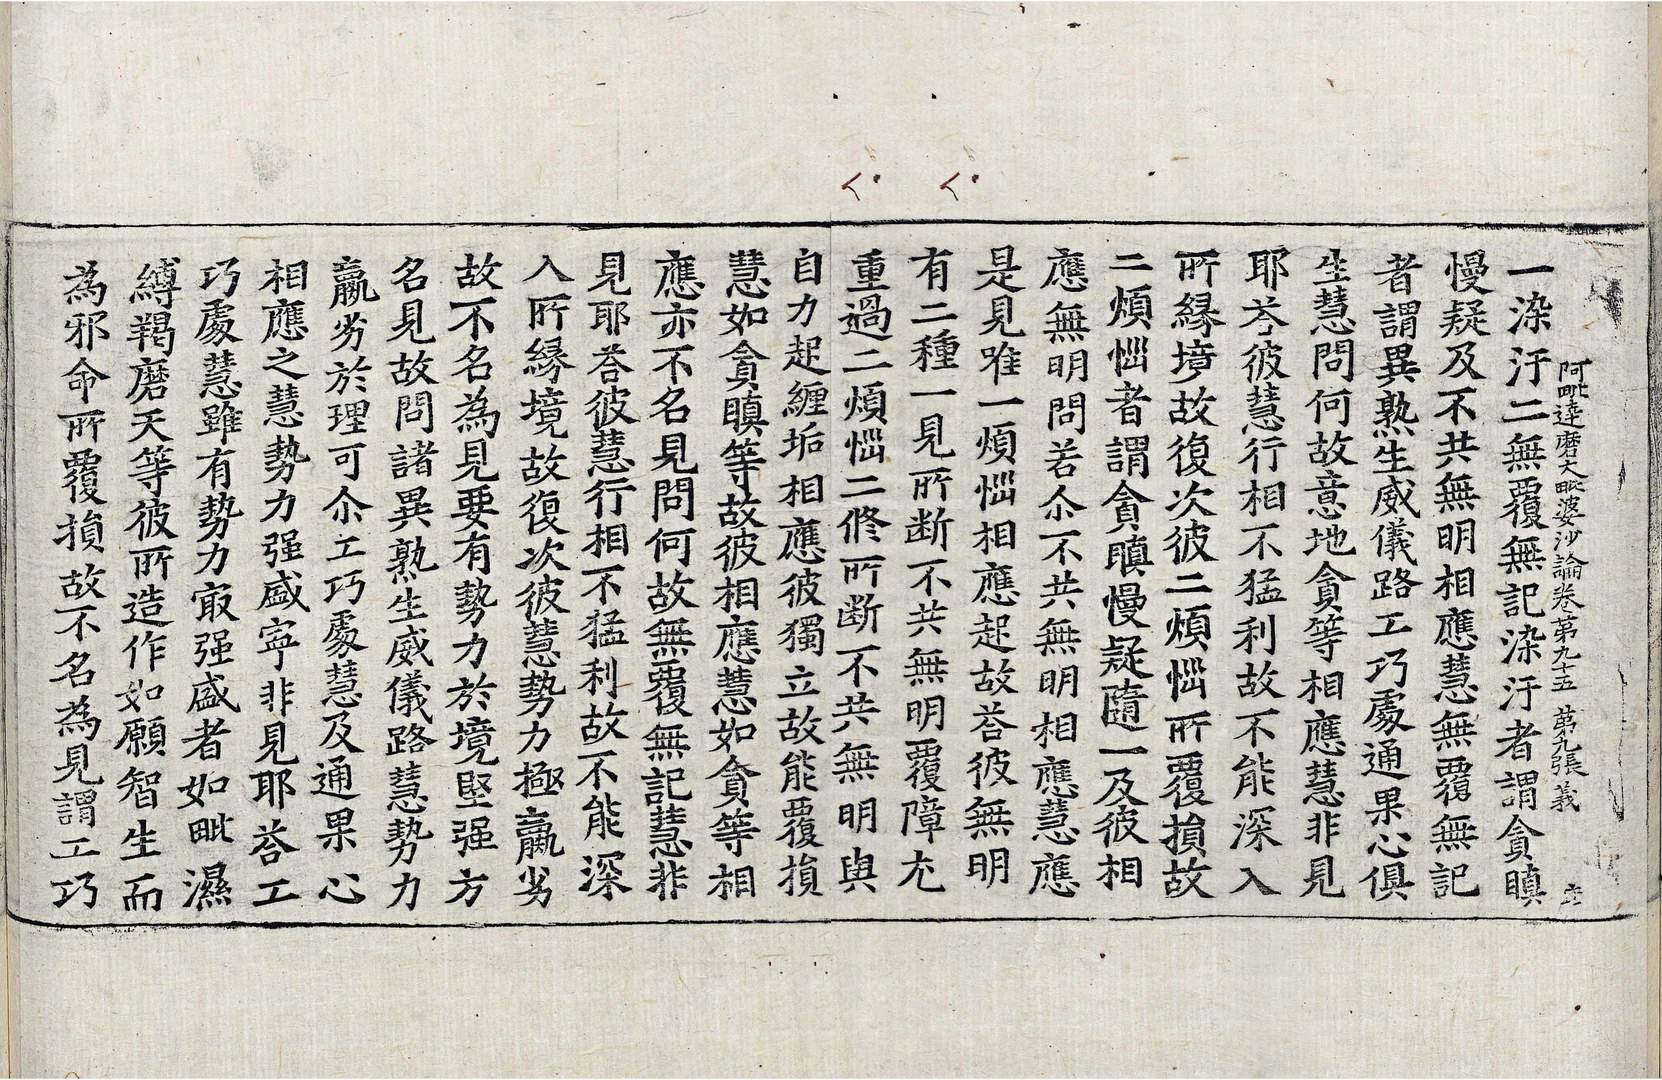 阿毗達磨大毗婆沙論卷第九十五　第九張　義
一染汙二無覆無記染汙者謂貪瞋
慢疑及不共無明相應慧無覆無記
者謂異熟生威儀路工巧處通果心俱
生慧問何故意地貪等相應慧非見
耶荅彼慧行相不猛利故不能深入
所縁境故復次彼二煩惱所覆損故
二煩惱者謂貪瞋慢疑隨一及彼相
應無明問若尒不共無明相應慧應
是見唯一煩惱相應起故荅彼無明
有二種一見所断不共無明覆障尤
重過二煩惱二修所断不共無明與
自力起纏垢相應彼獨立故能覆損
慧如貪瞋等故彼相應慧如貪等相
應亦不名見問何故無覆無記慧非
見耶荅彼慧行相不猛利故不能深
入所縁境故復次彼慧勢力極羸劣
故不名為見要有勢力於境堅强方
名見故問諸異熟生威儀路慧勢力
羸劣於理可尒工巧處慧及通果心
相應之慧勢力强盛寧非見耶荅工
巧處慧雖有勢力㝡强盛者如毗濕
縛羯磨天等彼所造作如願智生而
為邪命所覆損故不名為見謂工巧